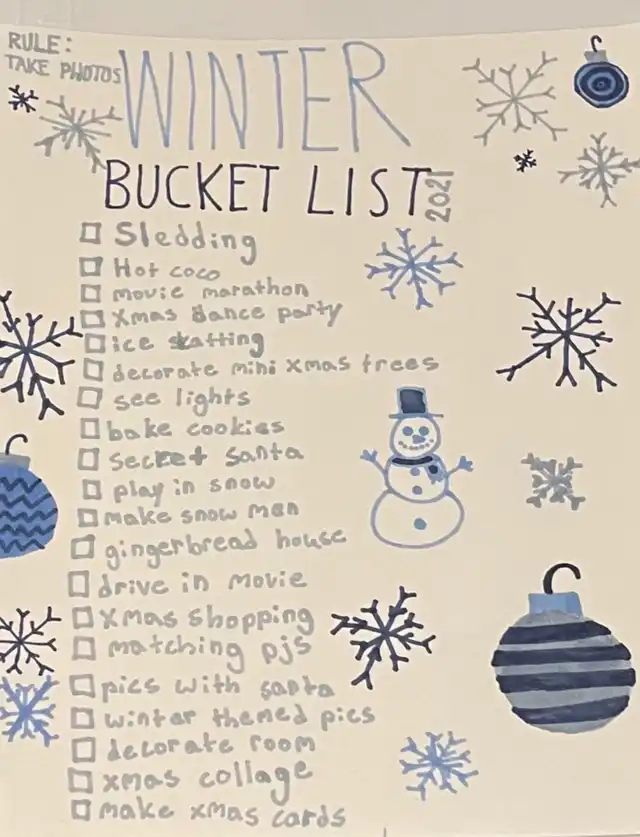 RULE:
TAKE PHOTOS
WINTER
BUCKET LIST 2021
Sledding
Hot coco
movie marathon
Xmas dance party
ice skatting
decorate mini xmas trees
see lights
bake cookies
secret santa
play in snow
make snow man
gingerbread house
drive in movie
Xmas shopping
matching pjs
pics with santa
winter themed pics
decorate room
xmas collage
make xmas cards